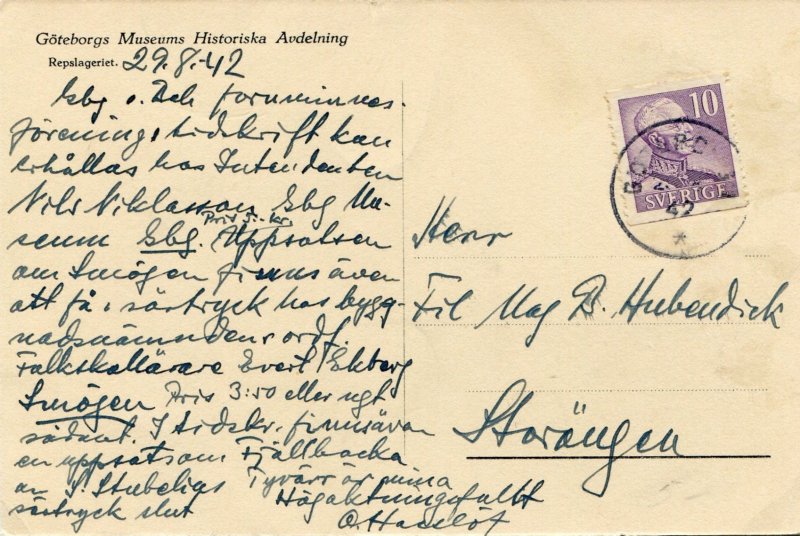 Göteborgs Museums Historiska Avdelning
Repslageriet. 29.8.42
Gbg o. Boh fornminnes-
förenings tidskrift kan
erhållas hos Intendenten
Nils Niklasson Gbg Mu-
Pris 5:- kr.
seum Gbg. Uppsatsen
om Smögen finns även
att få i särtryck hos bygg-
nadsnämndens ordf.
Folkskollärare Evert Ekberg
Smögen Pris 3:50 eller ngt
sådant. I tidskr. finns även
en uppsats om Fjällbacka
av S. Stubelius Tyvärr är mina
särtryck slut
Högaktningsfullt
O. Hasslöf
10
SVERIGE
GÖTEBORG
42
Herr
Fil Mag B. Hubendick
Storängen